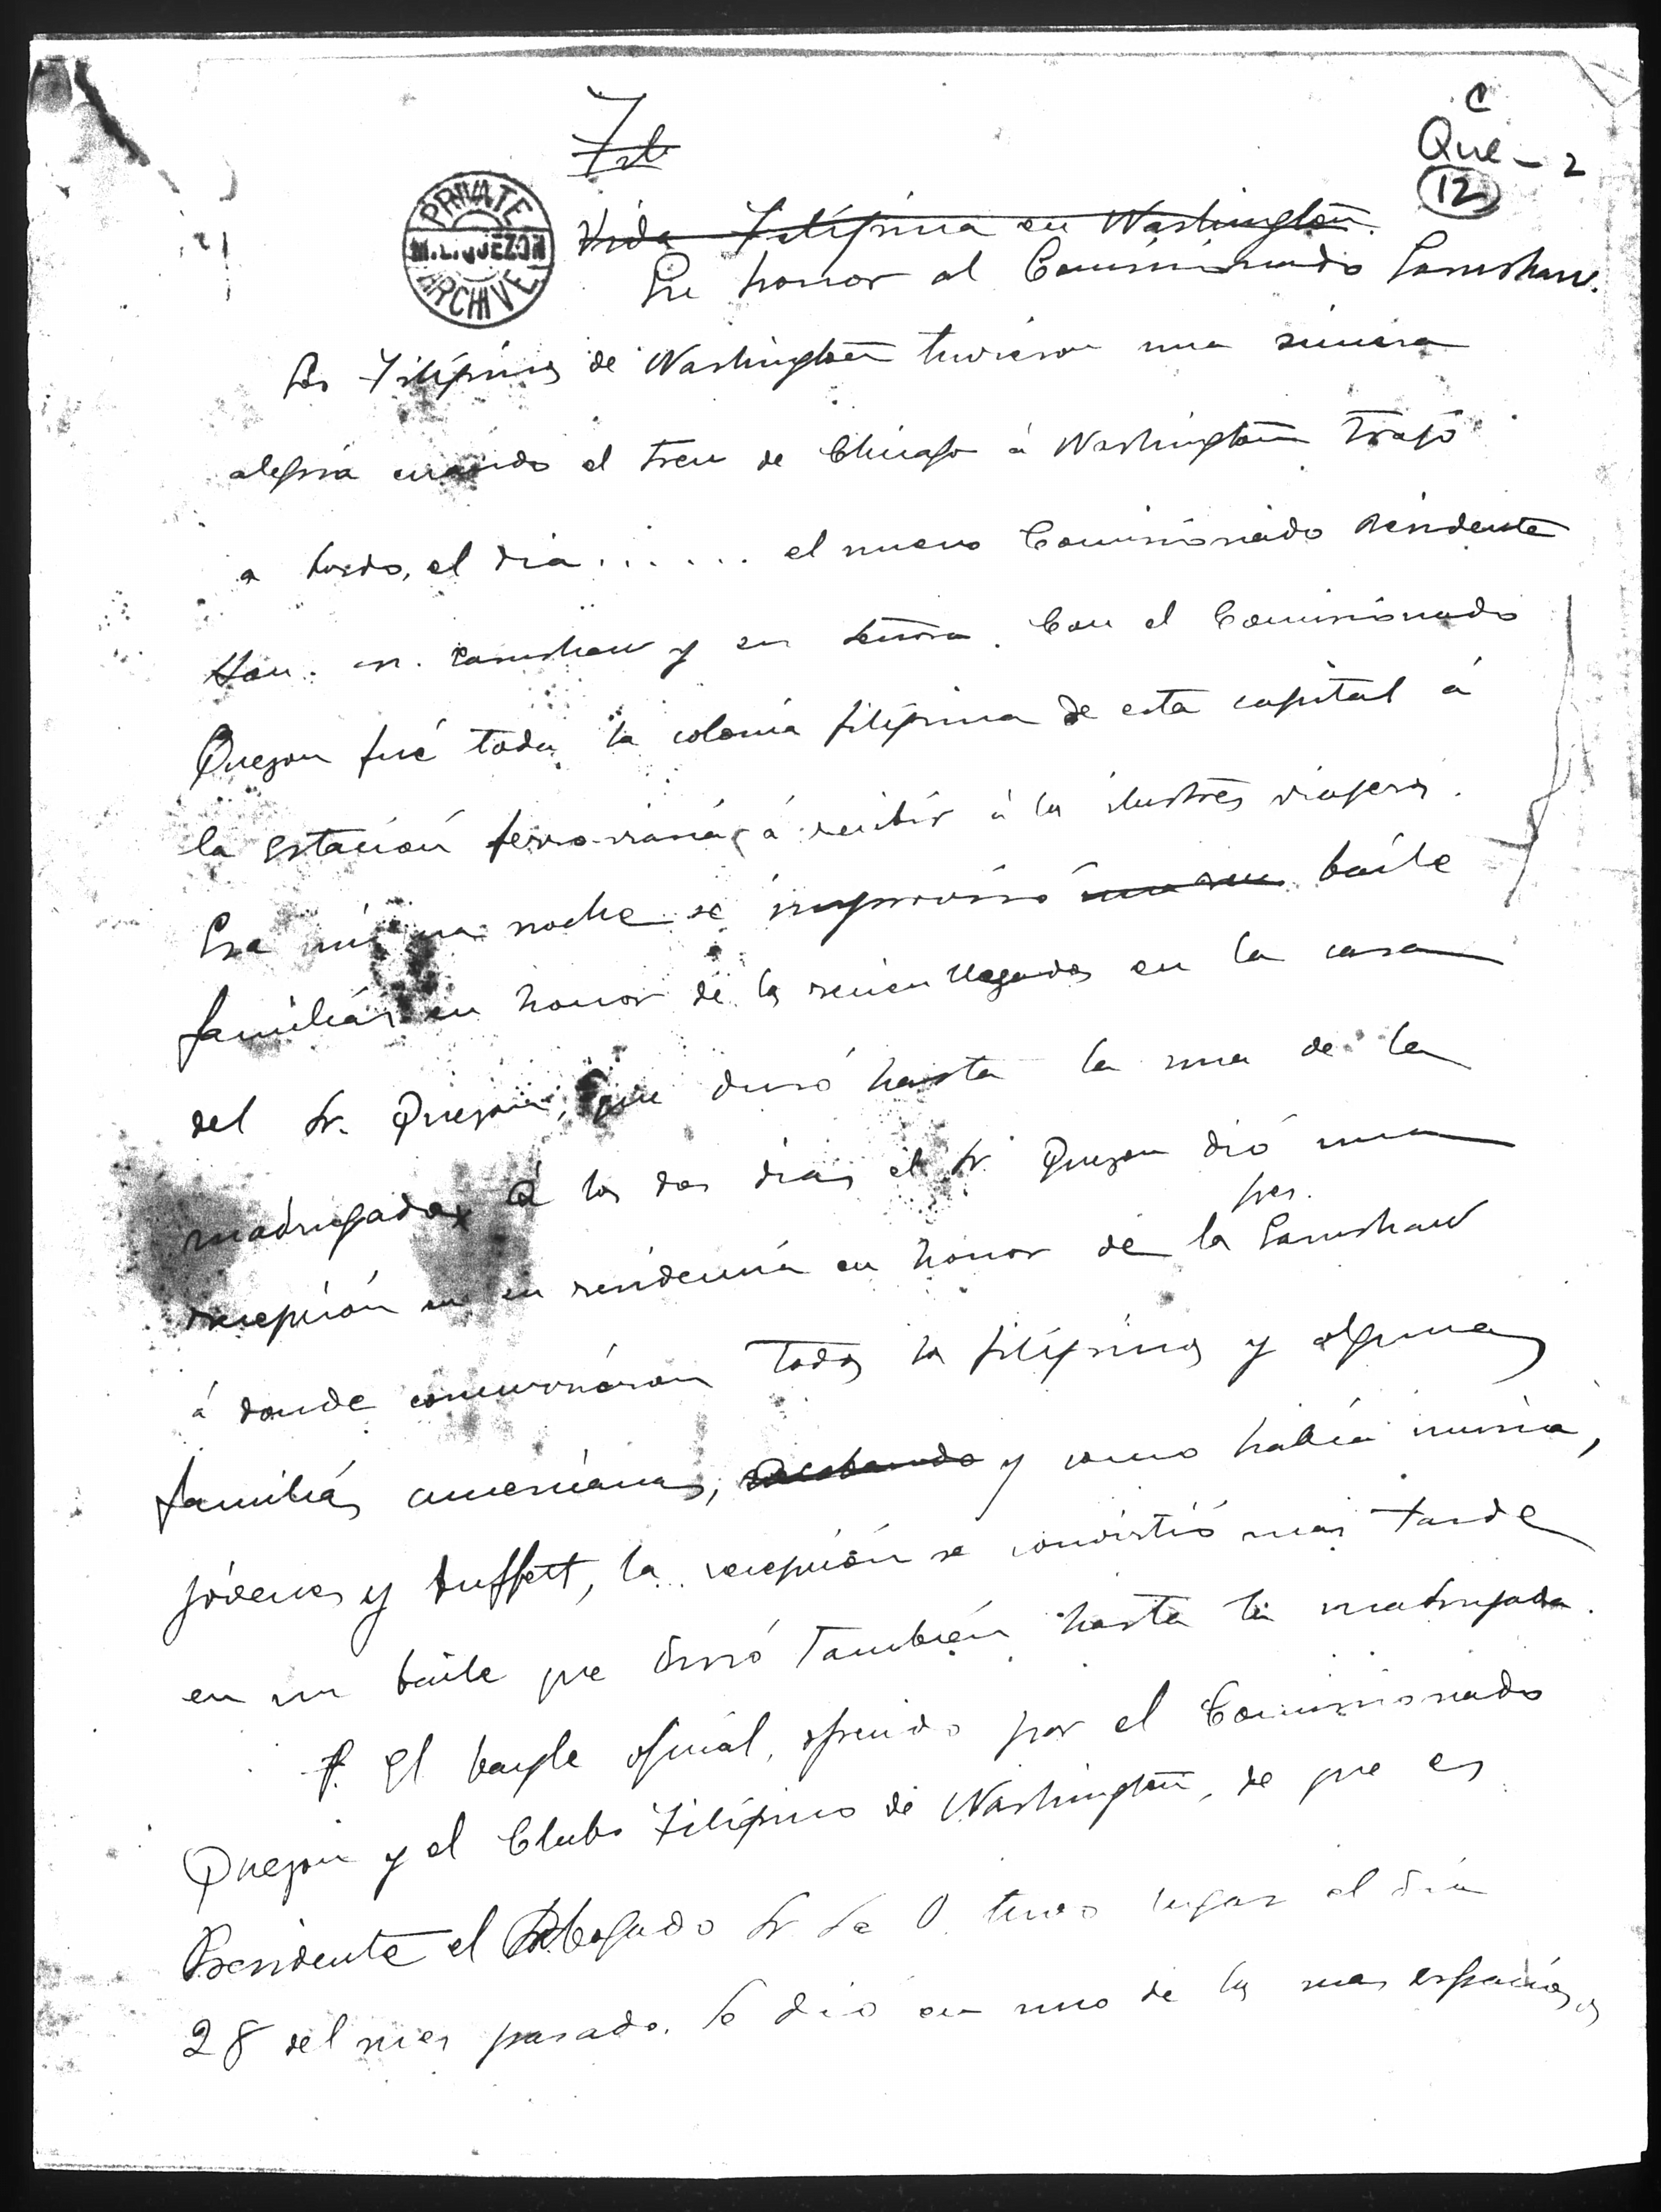 C
Que - 2
12
PRIVATE
M.L. QUEZON
ARCHIVE
Vida Filipina en Washington.
En honor al Comisionado Earnshaw.
Los Filipinos de Washington tuvieron una sincera
alegria cuando el tren de Chicago á Washington trajo
a bordo, el dia ...... el nuevo Comisionado Residente
Hon. M. Earnshaw y su señora. Con el Comisionado
Quezon fué toda la colonia filipina de esta capital á
la estación ferroviaria, á recibir á los ilustres viajeros.
Esa misma noche se improvisó baile
familiar en honor de los recien llegados en la casa
del Sr. Quezon, que duró hasta la una de la
madrugada. A los dos dias el Sr. Quezon dió una
pes.
recepción en su residencia en honor de la Earnshaw
á donde concurrieron todos los filipinos y algunas
familias americanas, y como habia musica,
jóvenes y buffett, la recepción se convirtió mas tarde
en un baile que duró tambien hasta la madrugada.
El bayle oficial, ofrecido por el Comisionado
Quezon y el Club Filipino de Washington, de que es
Presidente el Abogado Sr. de O. tuvo lugar el dia
28 del mes pasado. Se dió en uno de los mas espaciosos